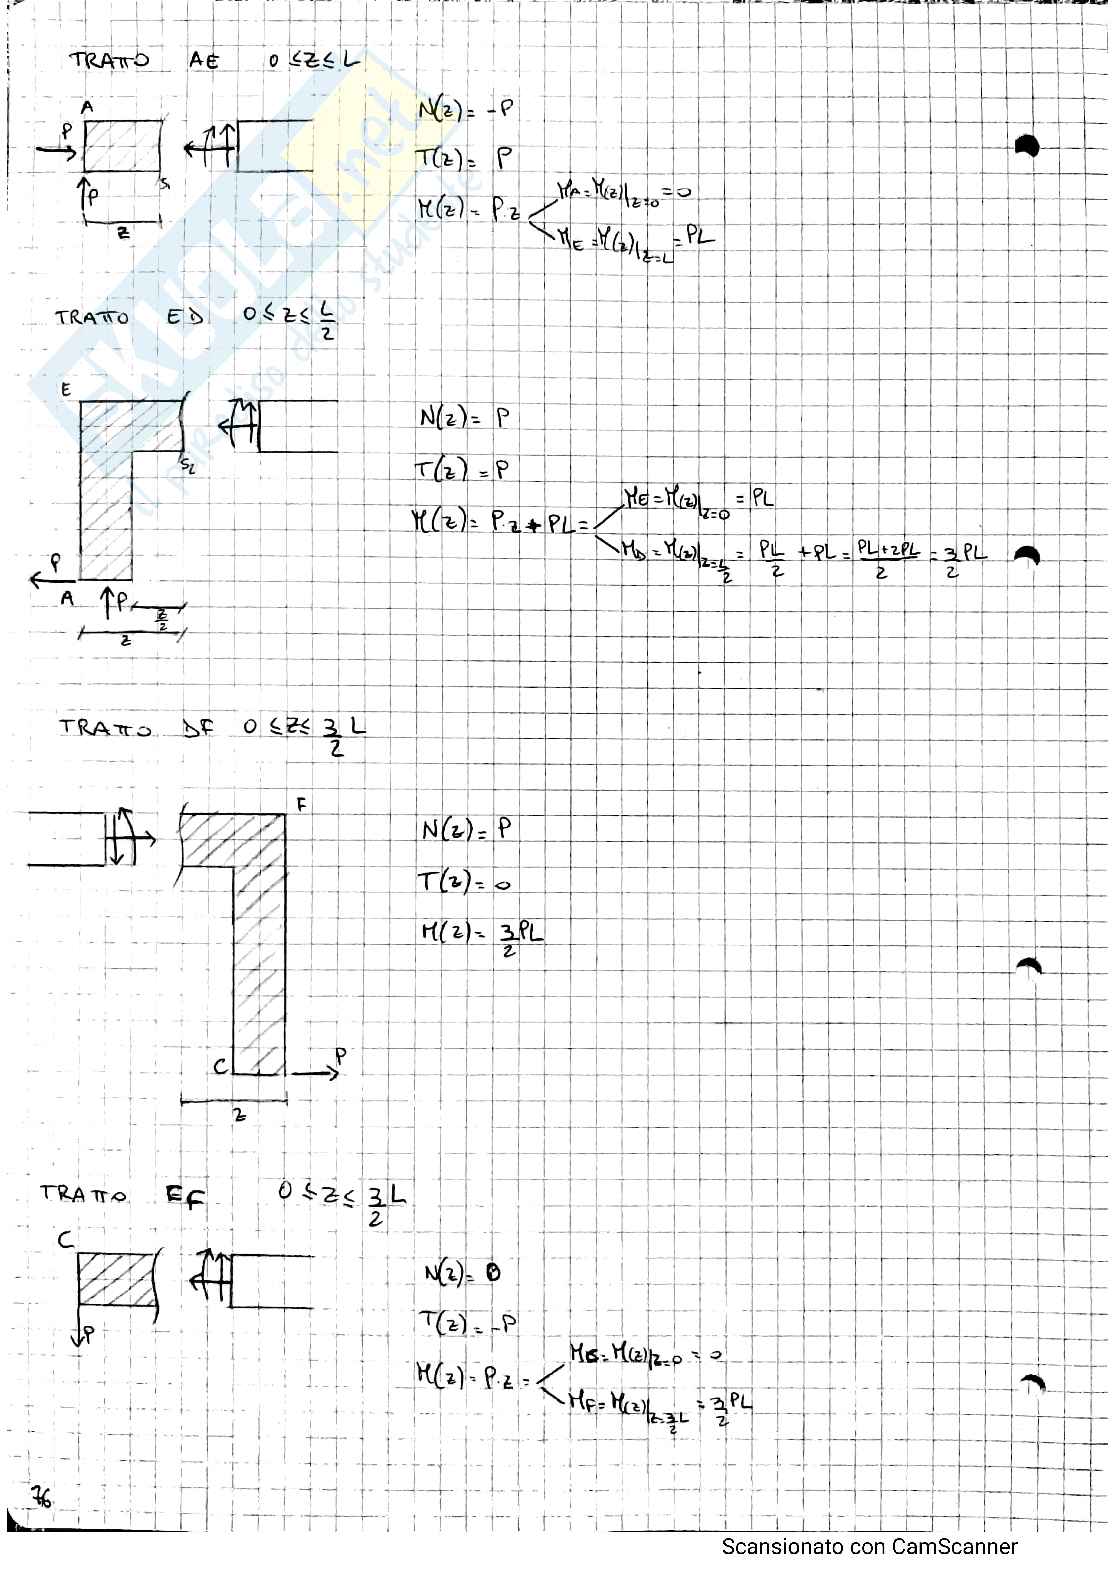 TRATTO AE 0 ≤ z ≤ L
A
P
P
S1
z
N(z) = -P
T(z) = P
M(z) = P·z
MA = M(z)|z=0 = 0
ME = M(z)|z=L = PL
TRATTO ED 0 ≤ z ≤ L/2
E
S2
P
A
P
z/2
z
N(z) = P
T(z) = P
M(z) = P·z + PL =
ME = M(z)|z=0 = PL
MD = M(z)|z=L/2 = PL/2 + PL = PL+2PL/2 = 3/2 PL
TRATTO DF 0 ≤ z ≤ 3/2 L
F
C
P
z
N(z) = P
T(z) = 0
M(z) = 3/2 PL
TRATTO EF 0 ≤ z ≤ 3/2 L
C
P
N(z) = 0
T(z) = -P
M(z) = P·z =
M(z)|z=0 = 0
MF = M(z)|z=3/2 L = 3/2 PL
76
SKUOLA.net
il paradiso dello studente
Scansionato con CamScanner